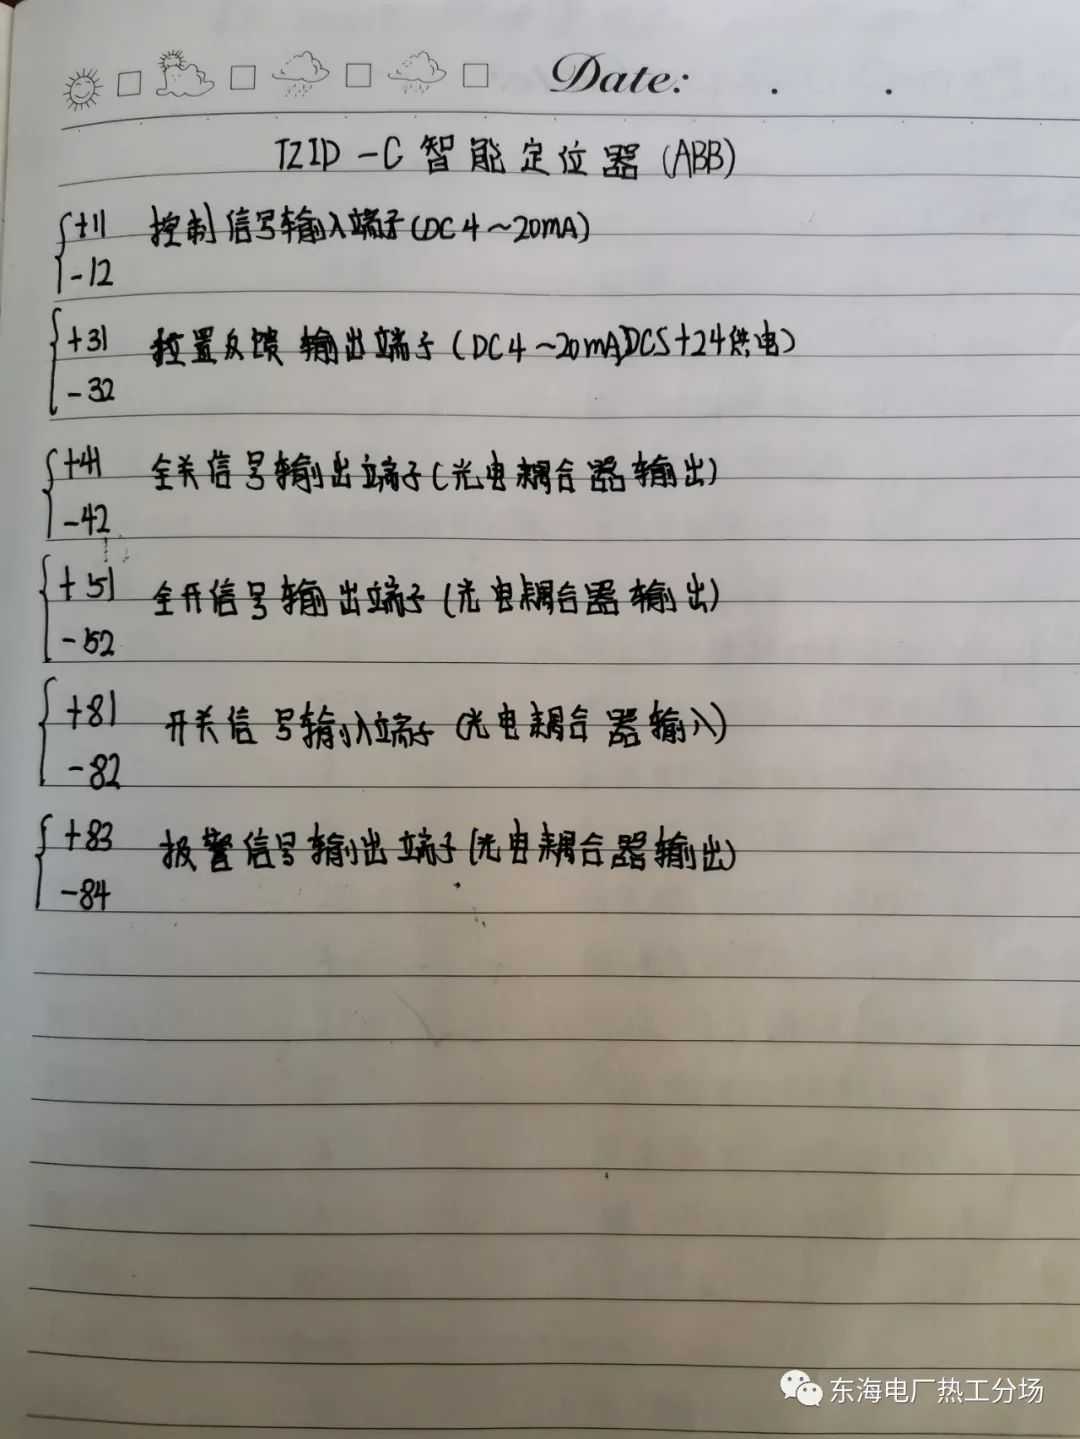 Date: . .
TZID-C智能定位器(ABB)
+11 控制信号输入端子(DC4~20mA)
-12
+31 位置反馈 输出端子(DC4~20mA,DCS+24供电)
-32
+41 全关信号输出端子(光电耦合器输出)
-42
+51 全开信号输出端子(光电耦合器输出)
-52
+81 开关信号输入端子(光电耦合器输入)
-82
+83 报警信号输出端子(光电耦合器输出)
-84
东海电厂热工分场